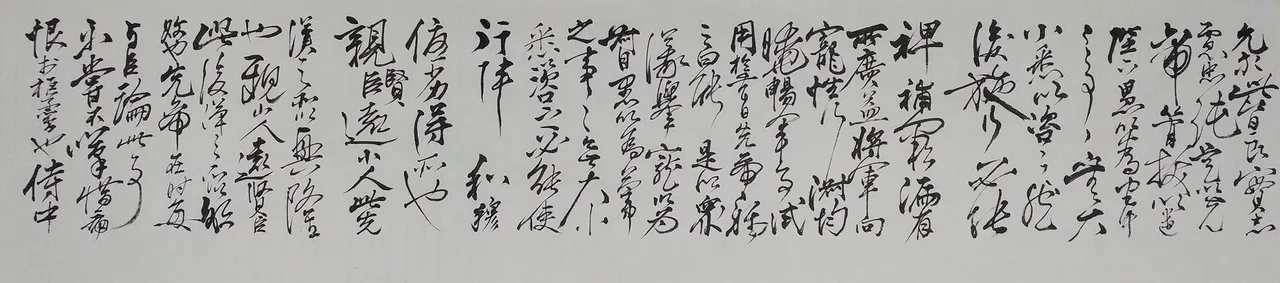 允等此皆良實志
慮忠純是以先
帝簡拔以遺
陛下愚以為宮中
之事事無大
小悉以咨之然
後施行必能
裨補闕漏有
所廣益將軍向
寵性行淑均
曉暢軍事試
用於昔日先帝稱
之曰能是以眾
議舉寵以為
督愚以為營
之事事無大小
悉以咨之必能使
行陣和穆
優劣得所也
親賢臣遠小人此先
漢之所以興隆
也親小人遠賢臣
此後漢之所以傾
頹也先帝在時每
與臣論此事
未嘗不嘆惜痛
恨於桓靈也侍中